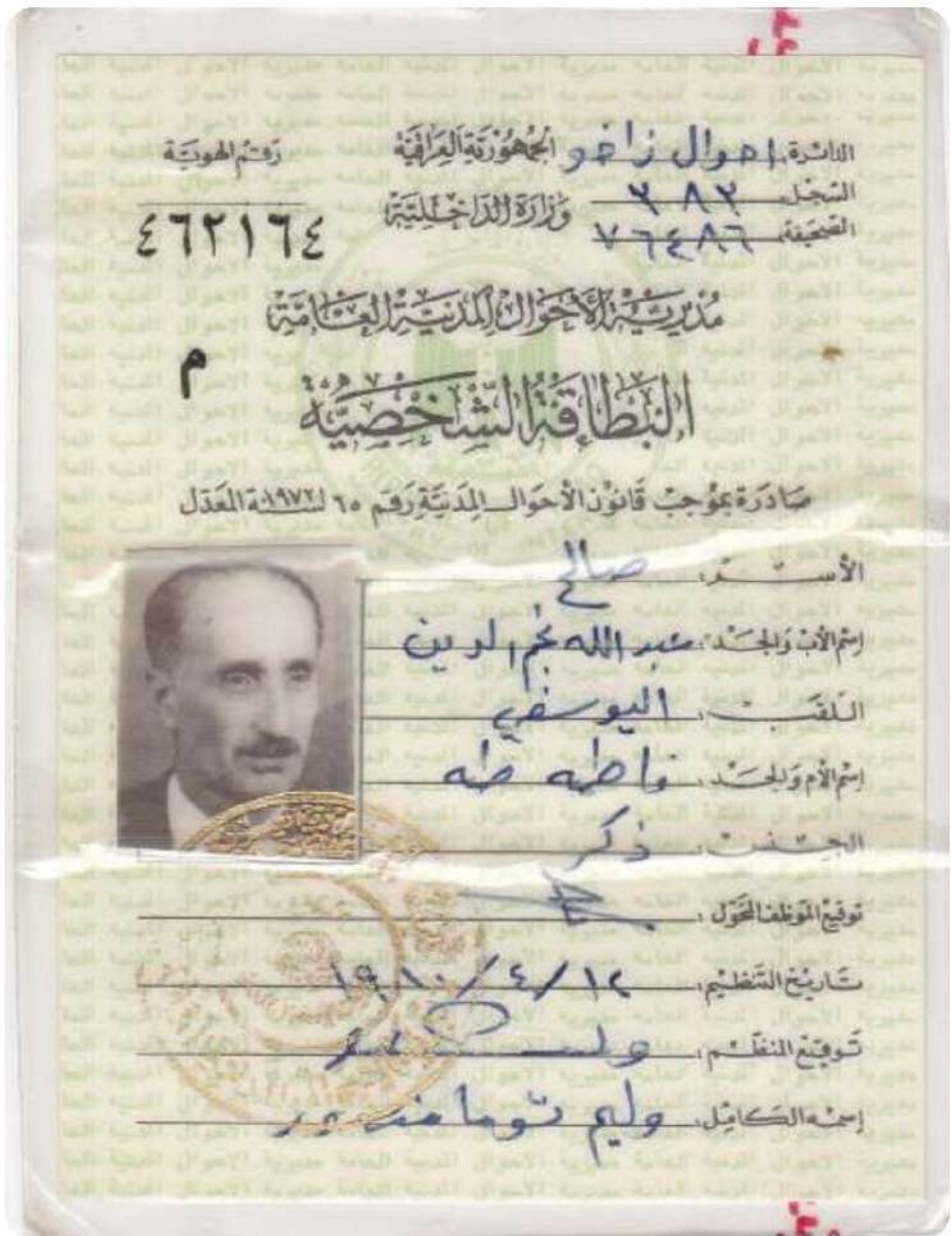 الدائرة: احوال زاخو
الجمهورية العراقية
رقم الهوية
السجل: ٣٨٢
وزارة الداخلية
الصحيفة: ٧٦٤٨٦
٤٦٢١٦٤
مديرية الأحوال المدنية العامة
م
البطاقة الشخصية
صادرة بموجب قانون الأحوال المدنية رقم ٦٥ لسنة ١٩٧٢ المعدل
الأسم: صالح
إسم الأب والجد: عبد الله نجم الدين
اللقب: اليوسفي
إسم الأم والجد: فاطمه طه
الجنس: ذكر
توقيع الموظف المخول:
تاريخ التنظيم: ١٢/٤/
توقيع المنظم:
إسمه الكامل: وليم توما